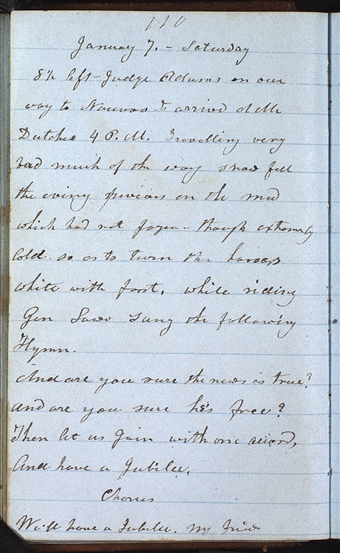 110
January 7. - Saturday
8½ left Judge Adams on our
way to Nauvoo & arrived at Mr
Dutchs 4 P.M. Travelling very
bad much of the way snow fell
the evening previous on the mud
which had not frozen - though extremely
Cold. so as to turn the horses
white with frost. while riding
Gen Law sung the following
Hymn.
And are you sure the news is true?
and are you sure he's free?
Then let us join with one accord,
And have a Jubilee.
Chorus
We'll have a Jubilee. My frids